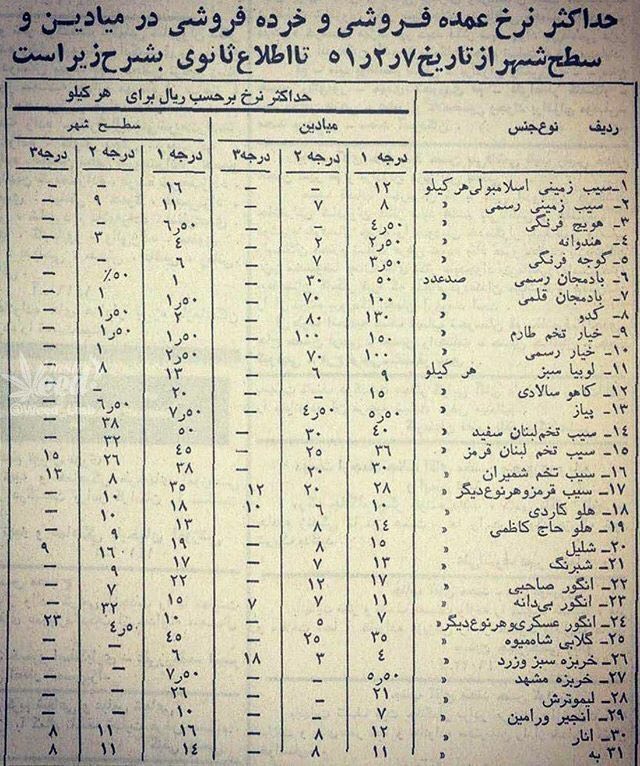 حداکثر نرخ عمده فروشی و خرده فروشی در میادین و
سطح شهر از تاریخ ۷ر۲ر۵۱ تا اطلاع ثانوی بشرح زیر است
ردیف نوع جنس حداکثر نرخ برحسب ریال برای هر کیلو
میادین سطح شهر
درجه ۱ درجه ۲ درجه ۳ درجه ۱ درجه ۲ درجه ۳
۱ـ سیب زمینی اسلامبولی هر کیلو ۱۲ – – ۱۶ – –
۲ـ سیب زمینی رسمی « ۸ ۷ – ۱۱ ۹ –
۳ـ هویج فرنگی « ۴ر۵۰ – – ۶ر۵۰ – –
۴ـ هندوانه « ۲ر۵۰ ۲ – ۴ ۳ –
۵ـ گوجه فرنگی « ۳ر۵۰ ۷ – ۶ – –
۶ـ بادمجان رسمی صدعدد ۵۰ ۳۰ – ۱ ۵۰٪ –
۷ـ بادمجان قلمی « ۱۰۰ ۷۰ – ۱ر۵۰ ۱ –
۸ـ کدو « ۱۳۰ ۸۰ – ۲ ۱ر۵۰ –
۹ـ خیار تخم طارم « ۱۵۰ ۱۰۰ – ۱ر۵۰ ۱ر۵۰ –
۱۰ـ خیار رسمی « ۱۰۰ ۷۰ – ۲ر۵۰ ۱ –
۱۱ـ لوبیا سبز هر کیلو ۹ ۶ – ۱۳ ۸ –
۱۲ـ کاهو سالادی « ۱۵ – – ۲۰ – –
۱۳ـ پیاز « ۵ر۵۰ ۴ر۵۰ – ۷ر۵۰ ۶ر۵۰ –
۱۴ـ سیب تخم لبنان سفید « ۴۰ ۳۰ – ۵۰ ۳۸ –
۱۵ـ سیب تخم لبنان قرمز « ۳۶ ۲۵ – ۴۵ ۳۲ –
۱۶ـ سیب تخم شمیران « ۳۰ ۲۰ – ۳۸ ۲۶ ۱۵
۱۷ـ سیب قرمز و هر نوع دیگر « ۲۸ ۲۰ ۱۲ ۳۵ ۸ ۱۳
۱۸ـ هلو کاردی « ۱۰ ۶ ۱۰ ۱۸ ۱۰ –
۱۹ـ هلو حاج کاظمی « ۱۴ ۸ – ۱۳ ۱۰ –
۲۰ـ شلیل « ۱۵ ۸ – ۱۹ ۹ –
۲۱ـ شبرنگ « ۱۳ ۷ – ۱۷ ۱۶ ۹
۲۲ـ انگور صاحبی « ۱۷ ۱۲ – ۲۲ ۹ –
۲۳ـ انگور بی‌دانه « ۱۱ ۷ ۷ ۱۵ ۷ –
۲۴ـ انگور عسکری و هر نوع دیگر « ۷ ۵ – ۱۰ ۳۲ –
۲۵ـ گلابی شاه‌میوه « ۳۵ ۲۵ – ۴۵ ۴ر۵۰ ۲۳
۲۶ـ خربزه سبز و زرد « ۴ ۳ ۱۸ ۶ – –
۲۷ـ خربزه مشهد « ۵ر۵۰ – – ۷ر۵۰ – –
۲۸ـ لیموترش « ۲۱ – – ۲۶ – –
۲۹ـ انجیر ورامین « ۷ – – ۱۰ – –
۳۰ـ انار « ۱۲ ۸ – ۱۶ ۱۱ ۸
۳۱ به « ۱۱ ۸ – ۱۴ ۱۱ ۸